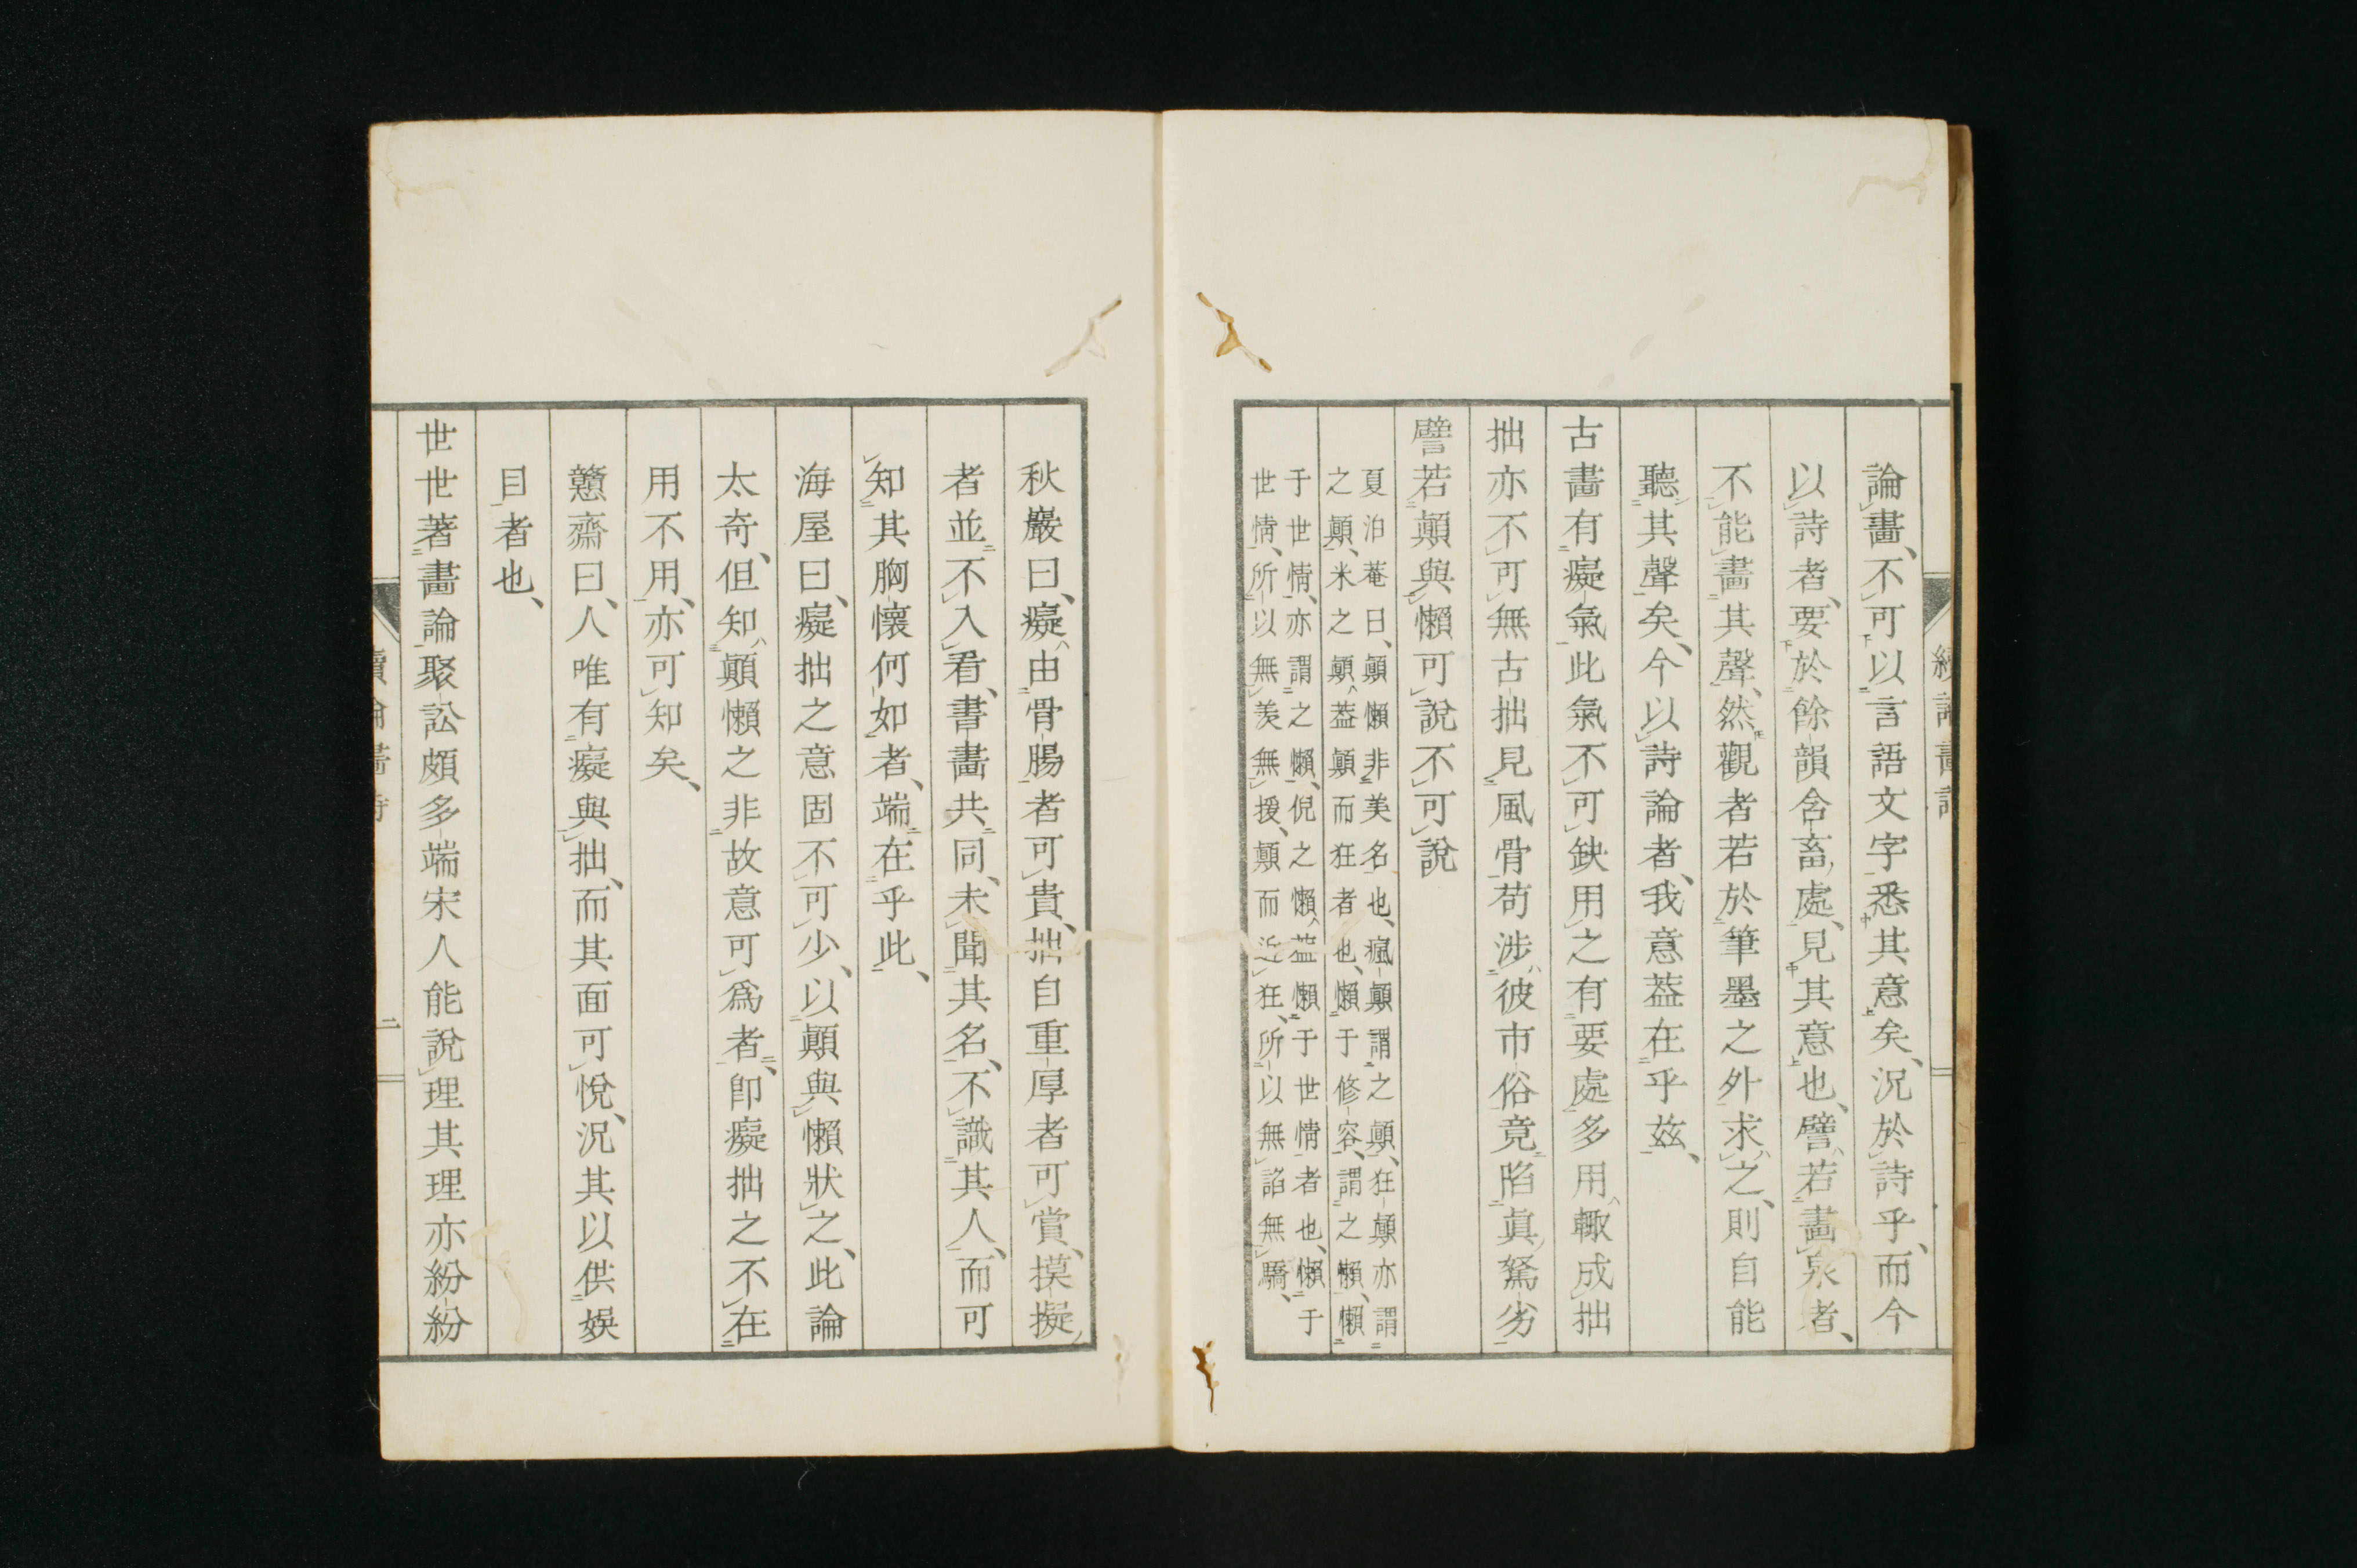 論畫、不可以言語文字悉其意矣、況於詩乎、而今
以詩者、要於餘韻含畜處、見其意也、譬若畫泉者、
不能畫其聲、然觀者若於筆墨之外求之、則自能
聽其聲矣、今以詩論者、我意葢在乎玆、
古畫有癡氣此氣不可缺用之有要處多用輙成拙
拙亦不可無古拙見風骨苟涉彼市俗竟陷眞駑劣
譬若顚與懶可說不可說
夏泊菴曰、顚懶非美名也、瘋顚謂之顚、狂顚亦謂
之顚、米之顚、葢顚而狂者也、懶于修容、謂之懶、懶
于世情、亦謂之懶、倪之懶、葢懶于世情者也、懶于
世情、所以無羨無援、顚而近狂、所以無諂無驕、
秋巖曰、癡由骨腸者可貴、拙自重厚者可賞、摸擬
者並不入看、書畫共同、未聞其名、不識其人、而可
知其胸懷何如者、端在乎此、
海屋曰、癡拙之意固不可少、以顚與懶狀之、此論
太奇、但知顚懶之非故意可爲者、卽癡拙之不在
用不用、亦可知矣、
戇齋曰、人唯有癡與拙、而其面可悅、況其以供娛
目者也、
世世著畫論聚訟頗多端宋人能說理其理亦紛紛
二